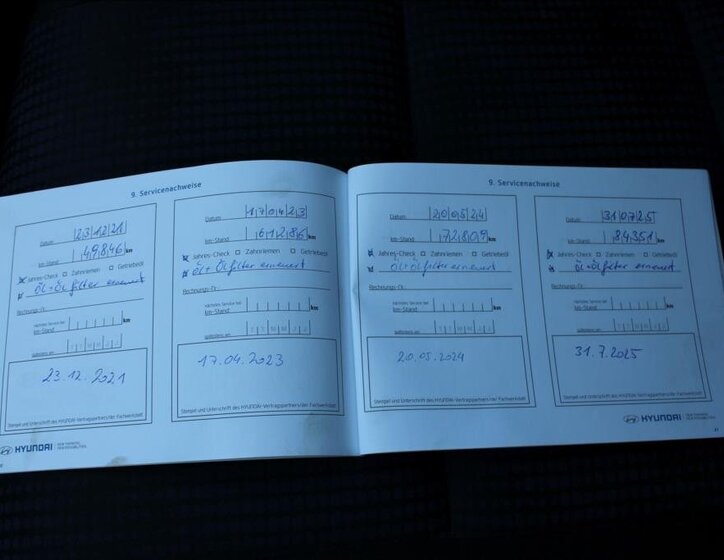 9. Servicenachweise
Datum 23 12 21
km-Stand 49846 km
☒ Jahres-Check ☐ Zahnriemen ☐ Getriebeöl
☒ Öl + Öl filter erneuert
Rechnungs-Nr.
nächster Service bei
km-Stand km
spätestens am T T M M J J
23.12.2021
Stempel und Unterschrift des HYUNDAI-Vertragspartners/der Fachwerkstatt
Datum 17 04 23
km-Stand 61286 km
☒ Jahres-Check ☐ Zahnriemen ☐ Getriebeöl
☒ Öl + Ölfilter erneuert
Rechnungs-Nr.
nächster Service bei
km-Stand km
spätestens am T T M M J J
17.04.2023
Stempel und Unterschrift des HYUNDAI-Vertragspartners/der Fachwerkstatt
HYUNDAI NEW THINKING. NEW POSSIBILITIES.
9. Servicenachweise
Datum 20 05 24
km-Stand 72809 km
☒ Jahres-Check ☐ Zahnriemen ☐ Getriebeöl
☒ Öl + Ölfilter erneuert
Rechnungs-Nr.
nächster Service bei
km-Stand km
spätestens am T T M M J J
20.05.2024
Stempel und Unterschrift des HYUNDAI-Vertragspartners/der Fachwerkstatt
Datum 31 07 25
km-Stand 84351 km
☒ Jahres-Check ☐ Zahnriemen ☐ Getriebeöl
☒ Öl + Ölfilter erneuert
Rechnungs-Nr.
nächster Service bei
km-Stand km
spätestens am T T M M J J
31.7.2025
Stempel und Unterschrift des HYUNDAI-Vertragspartners/der Fachwerkstatt
HYUNDAI NEW THINKING. NEW POSSIBILITIES.